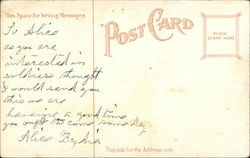 This Space for Writing Messages
POST CARD
PLACE
STAMP HERE
To Alice
as you are
interested in
soldiers thought
I would send you
this we are
having a good time
you ought to come some day
Alice
This side for the Address only